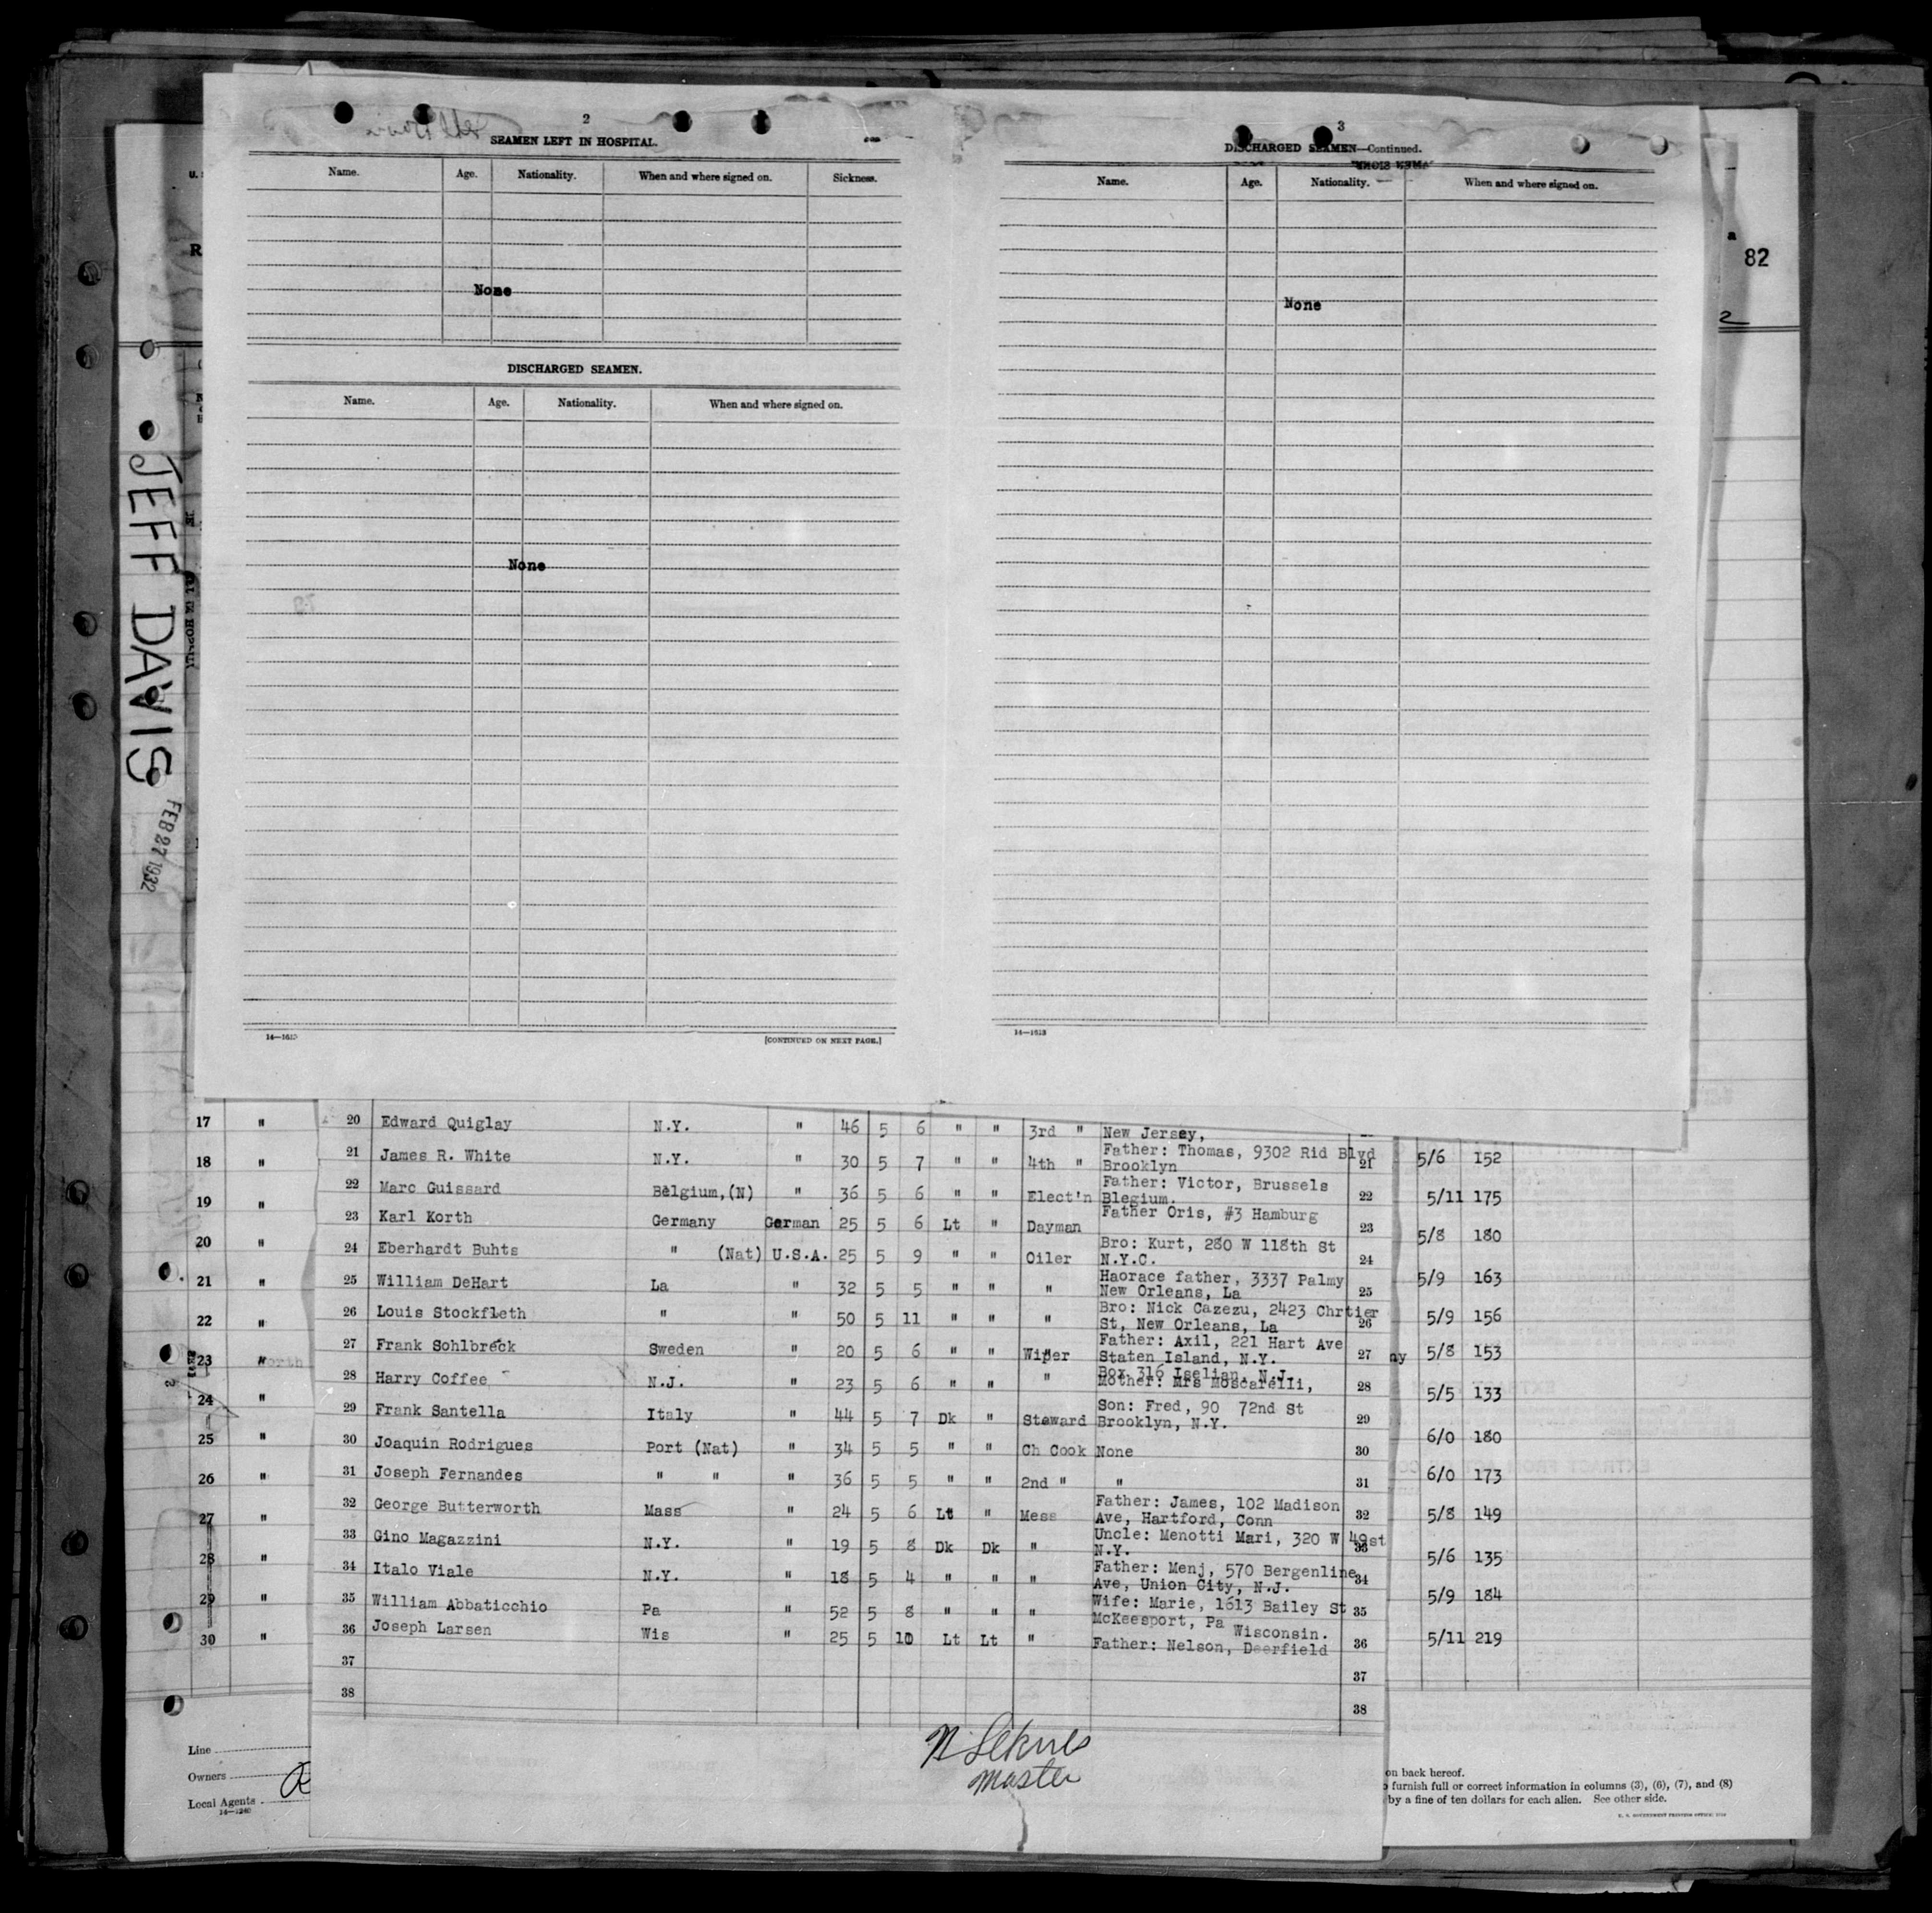 2
SEAMEN LEFT IN HOSPITAL.
Name. Age. Nationality. When and where signed on. Sickness.
None
DISCHARGED SEAMEN.
Name. Age. Nationality. When and where signed on.
None
14—1613 [CONTINUED ON NEXT PAGE.]
3
DISCHARGED SEAMEN—Continued.
Name. Age. Nationality. When and where signed on.
None
14—1613
82
2
JEFF DAVIS
FEB 27 1932
20 Edward Quiglay N.Y. " 46 5 6 " " 3rd " New Jersey,
21 James R. White N.Y. " 30 5 7 " " 4th " Father: Thomas, 9302 Rid Blvd
Brooklyn 21
22 Marc Guissard Belgium,(N) " 36 5 6 " " Elect'n Father: Victor, Brussels
Blegium. 22
23 Karl Korth Germany German 25 5 6 Lt " Dayman Father Oris, #3 Hamburg 23
24 Eberhardt Buhts " (Nat) U.S.A. 25 5 9 " " Oiler Bro: Kurt, 280 W 118th St
N.Y.C. 24
25 William DeHart La " 32 5 5 " " " Haorace father, 3337 Palmy
New Orleans, La 25
26 Louis Stockfleth " " 50 5 11 " " " Bro: Nick Cazezu, 2423 Chrtier
St, New Orleans, La 26
27 Frank Sohlbreck Sweden " 20 5 6 " " Wiper Father: Axil, 221 Hart Ave
Staten Island, N.Y. 27
28 Harry Coffee N.J. " 23 5 6 " " " Box 316 Iselian, N.J.
Mother: Mrs Moscarelli, 28
29 Frank Santella Italy " 44 5 7 Dk " Steward Son: Fred, 90 72nd St
Brooklyn, N.Y. 29
30 Joaquin Rodrigues Port (Nat) " 34 5 5 " " Ch Cook None 30
31 Joseph Fernandes " " " 36 5 5 " " 2nd " " 31
32 George Butterworth Mass " 24 5 6 Lt " Mess Father: James, 102 Madison
Ave, Hartford, Conn 32
33 Gino Magazzini N.Y. " 19 5 8 Dk Dk " Uncle: Menotti Mari, 320 W 49st
N.Y. 33
34 Italo Viale N.Y. " 18 5 4 " " " Father: Menj, 570 Bergenline
Ave, Union City, N.J. 34
35 William Abbaticchio Pa " 52 5 8 " " " Wife: Marie, 1613 Bailey St
McKeesport, Pa 35
36 Joseph Larsen Wis " 25 5 10 Lt Lt " Wisconsin.
Father: Nelson, Deerfield 36
37 37
38 38
Master
17 "
18 " 5/6 152
19 " 5/11 175
20 " 5/8 180
21 " 5/9 163
22 " 5/9 156
23 " ny 5/8 153
24 " 5/5 133
25 " 6/0 180
26 " 6/0 173
27 " 5/8 149
28 " 5/6 135
29 " 5/9 184
30 " 5/11 219
Line
Owners
Local Agents
14—1240
on back hereof.
furnish full or correct information in columns (3), (6), (7), and (8)
by a fine of ten dollars for each alien. See other side.
U. S. GOVERNMENT PRINTING OFFICE